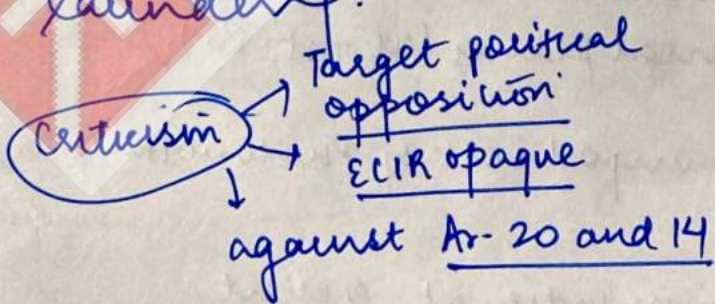 Laundering.
Criticism
Target political
opposition
ECIR opaque
against Ar- 20 and 14